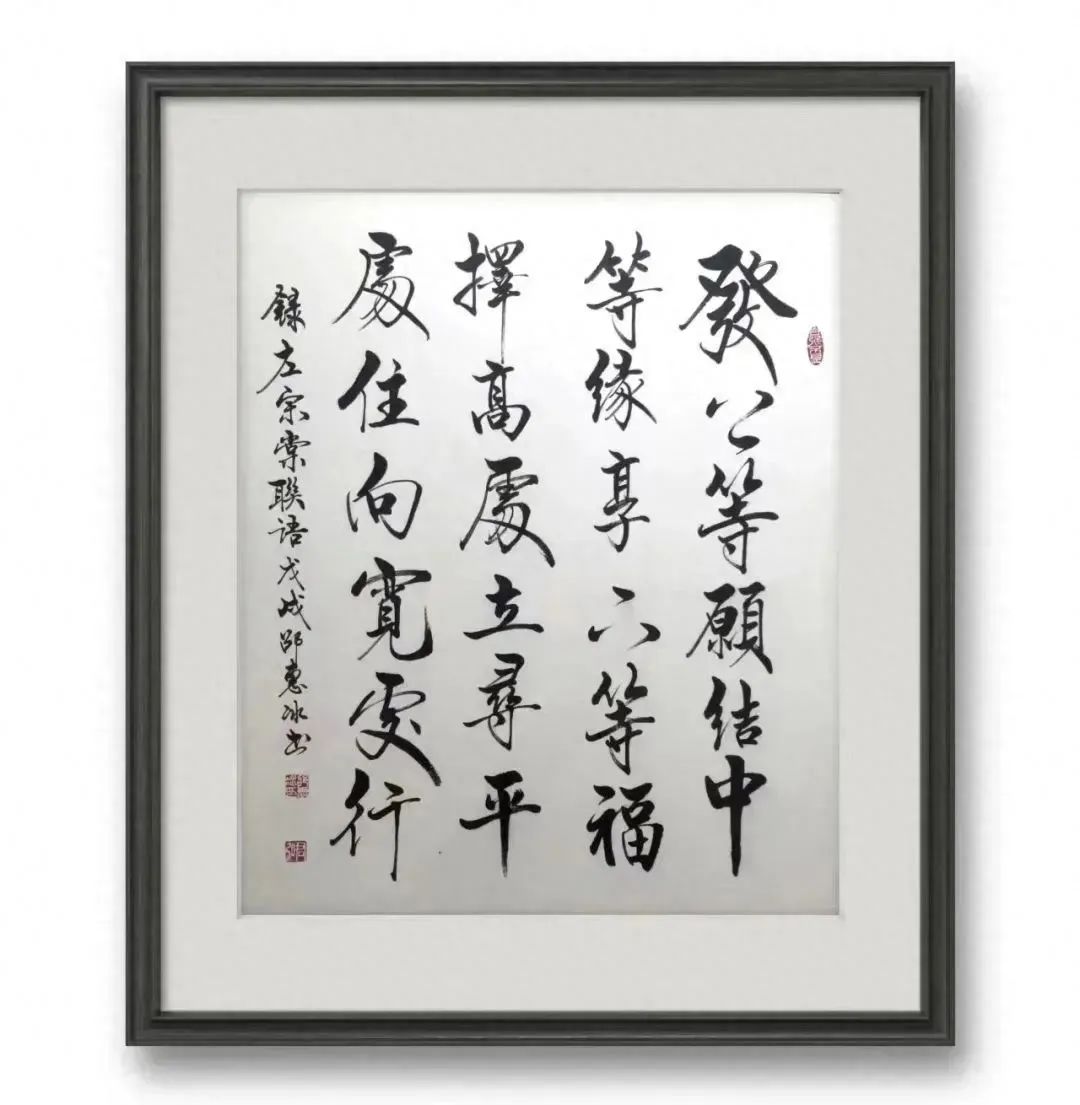 發上等願結中
等緣享下等福
擇高處立尋平
處住向寬處行
録左宗棠聯语戊戌邵惠冰书